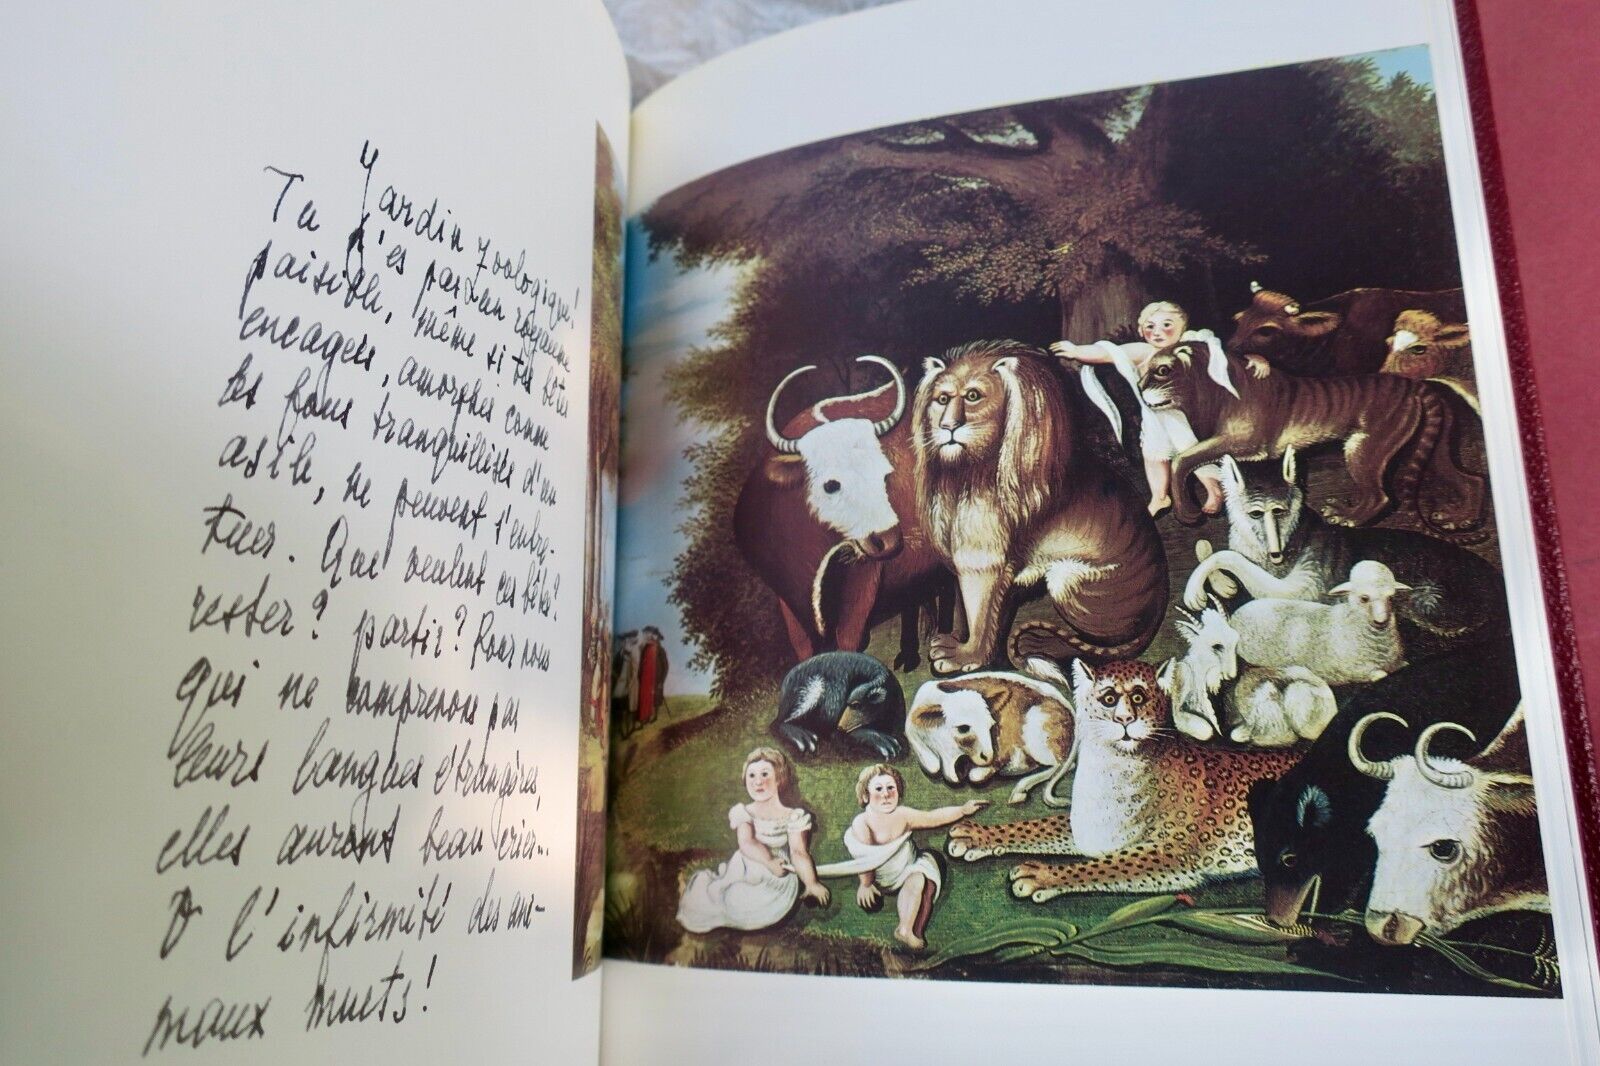 Jardin zoologique!
Tu n'es pas un royaume
paisible, même si tes bêtes
encagées, amorphes comme
les fous tranquillisés d'un
asile, ne peuvent s'entre-
tuer. Que veulent ces bêtes?
rester? partir? Pour nous
qui ne comprenons pas
leurs langues étrangères,
elles auront beau crier...
O l'infirmité des ani-
maux muets!